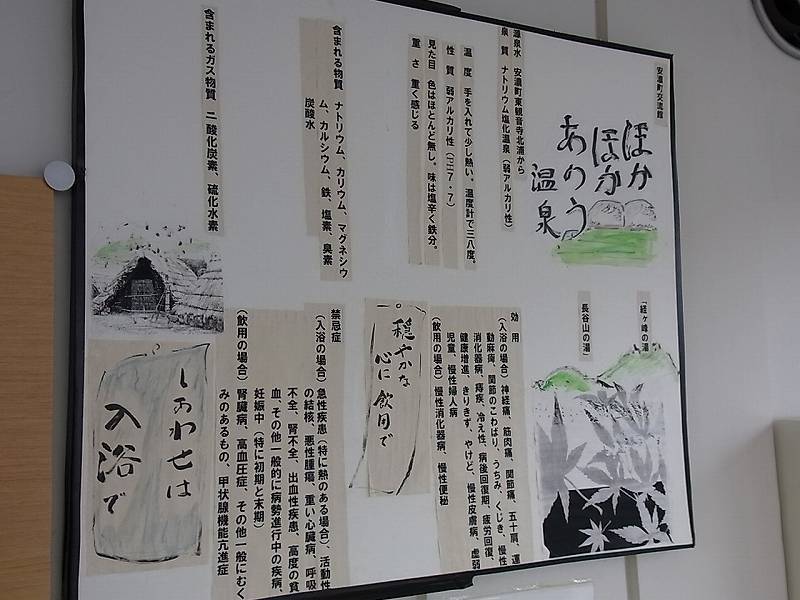 安濃町交流館
ほか
ほか
あのう
温泉
源泉水 安濃町東観音寺北浦から
泉質 ナトリウム塩化温泉(弱アルカリ性)
温度 手を入れて少し熱い。温度計で三八度。
性質 弱アルカリ性(三七・七)
見た目 色はほとんど無し。味は塩辛く鉄分。
重さ 重く感じる
含まれる物質 ナトリウム、カリウム、マグネシウ
ム、カルシウム、鉄、塩素、臭素
炭酸水
含まれるガス物質 二酸化炭素、硫化水素
「経ヶ峰の湯」
長谷山の湯」
効用
(入浴の場合)神経痛、筋肉痛、関節痛、五十肩、運
動麻痺、関節のこわばり、うちみ、くじき、慢性
消化器病、痔疾、冷え性、病後回復期、疲労回復、
健康増進、きりきず、やけど、慢性皮膚病、虚弱
児童、慢性婦人病
(飲用の場合)慢性消化器病、慢性便秘
穏やかな
心に飲用で
禁忌症
(入浴の場合)急性疾患(特に熱のある場合)、活動性
の結核、悪性腫瘍、重い心臓病、呼吸
不全、腎不全、出血性疾患、高度の貧
血、その他一般的に病勢進行中の疾病、
妊娠中(特に初期と末期)
(飲用の場合)腎臓病、高血圧症、その他一般にむく
みのあるもの、甲状腺機能亢進症
しあわせは
入浴で